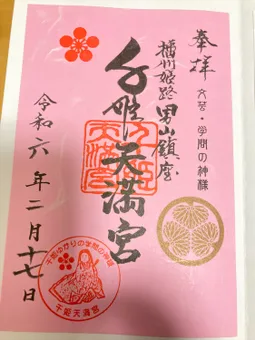 奉拝
文芸・学問の神様
播州姫路男山鎮座
千姫天満宮
令和六年二月十七日
千姫ゆかりの学問の神様
千姫天満宮